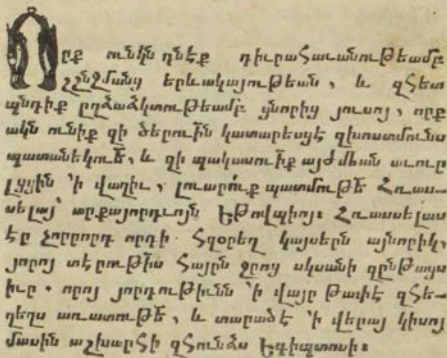 Որք ունկն դնէք դիւրահաւանութեամբ
շշնջմանց երևակայութեան, և զհետ
պնդիք ըղձաձկտութեամբ յնորից յուսոյ, որք
ակն ունիք զի ծերուին կատարեսցէ զխոստմունս
պատանեկուէ, և զի պակասուիք այժմեան աւուր
լցցին ՚ի վաղիւ, լուարո՛ւք պատմութե Հռասս
սելայ՝ արքայորդւոյն Եթովպիոյ։ Հռասսելաս
էր չորրորդ որդի հզօրեղ կայսերն այնորիկ,
յորոյ տէրութիս Հայրն ջրոյ սկսանի զընթացս
իւր. որոյ յորդութիւնն ՚ի վայր թափէ զհե-
ղեղս առատութե, և տարածէ ՚ի վերայ կիսոյ
մասին աշխարհի զհունձս Եգիպտոսի։